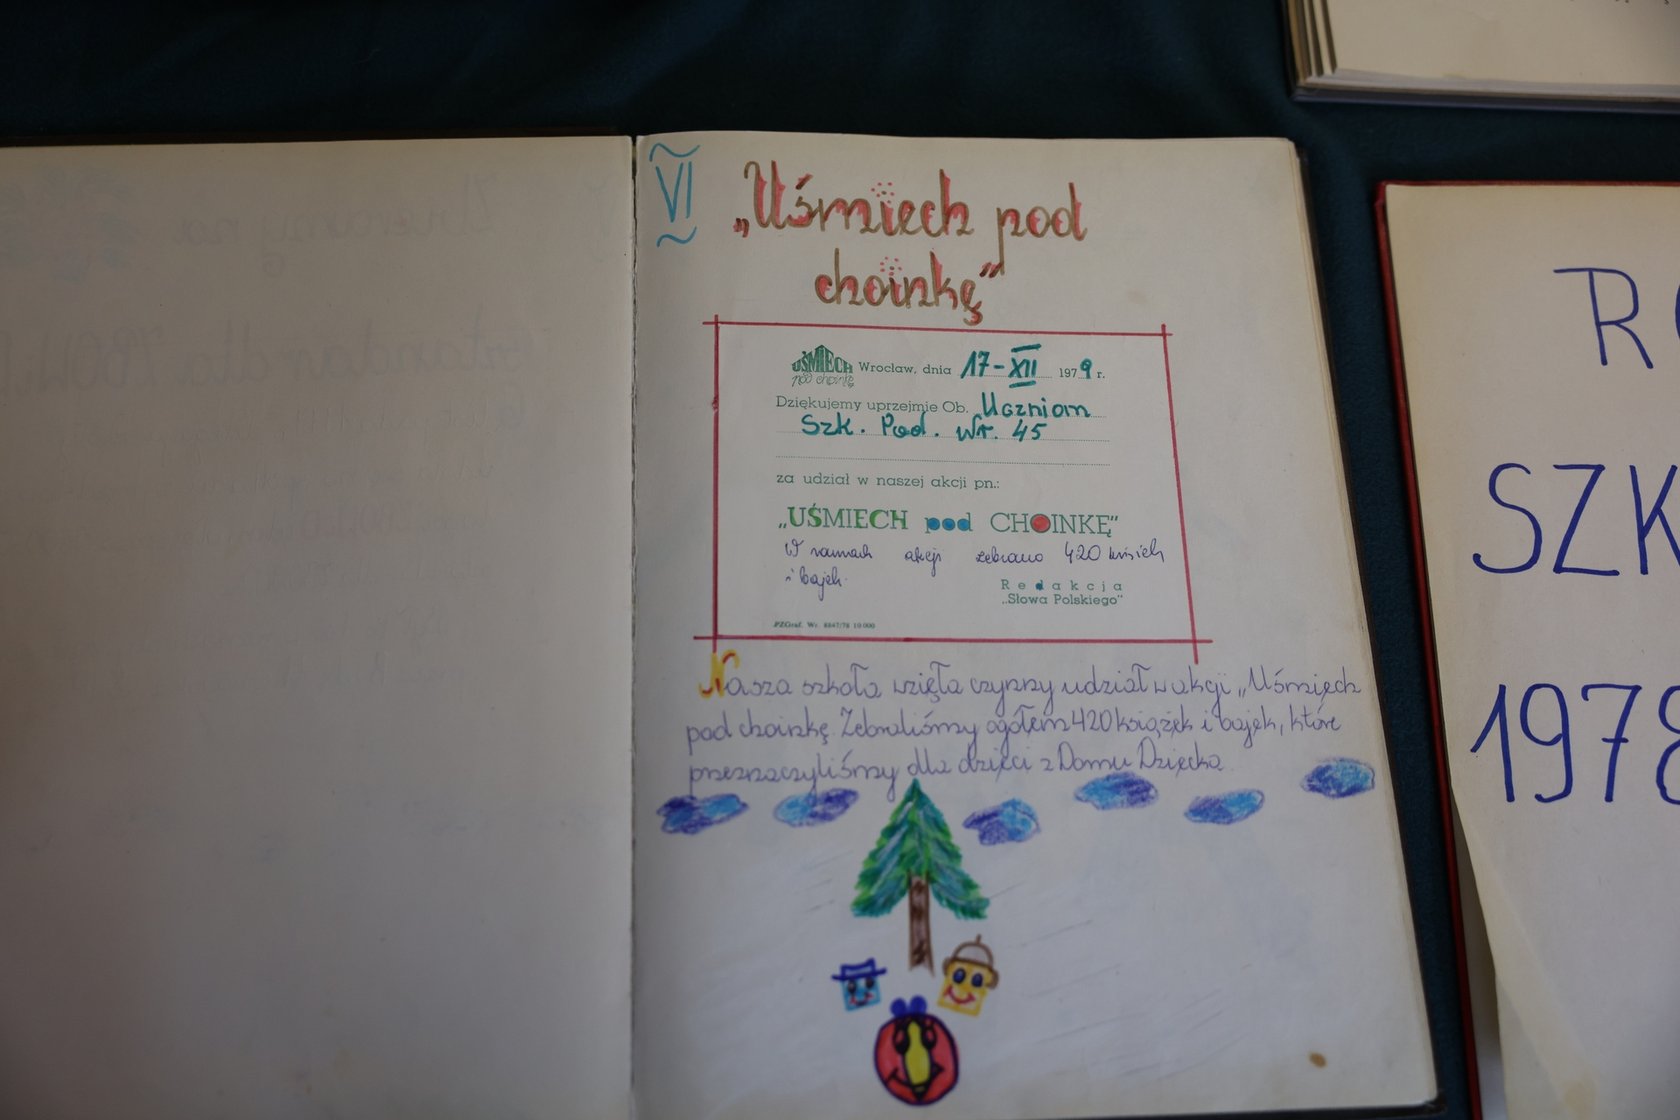 VI
„Uśmiech pod
choinkę”
UŚMIECH
pod choinkę
Wrocław, dnia 17-XII 1979 r.
Dziękujemy uprzejmie Ob. Uczniom
Szk. Pod. Nr. 45
za udział w naszej akcji pn.:
„UŚMIECH pod CHOINKĘ”
W ramach akcji zebrano 420 książek
i bajek.
Redakcja
„Słowa Polskiego”
PZGraf. Wr. 8847/78 10 000
Nasza szkoła wzięła czynny udział w akcji „Uśmiech
pod choinkę. Zebraliśmy ogółem 420 książek i bajek, które
przeznaczyliśmy dla dzieci z Domu Dziecka.
SZK
1978